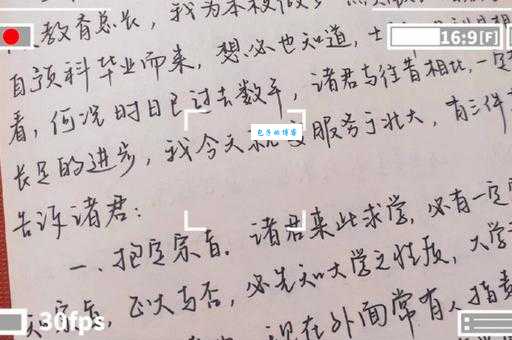 教育总长，我为本校做
自预科毕业而来，想必也知道，士
看，何况时日已过去数年，诸君与往昔相比，一定
长足的进步，我今天就要服务于北大，有三件
告诉诸君：
一、抱定宗旨。诸君来此求学，必有一定宗
正大与否，必先知大学之性质，大学
现在外面常有人指责
16:9[F]
包子的博客
30fps